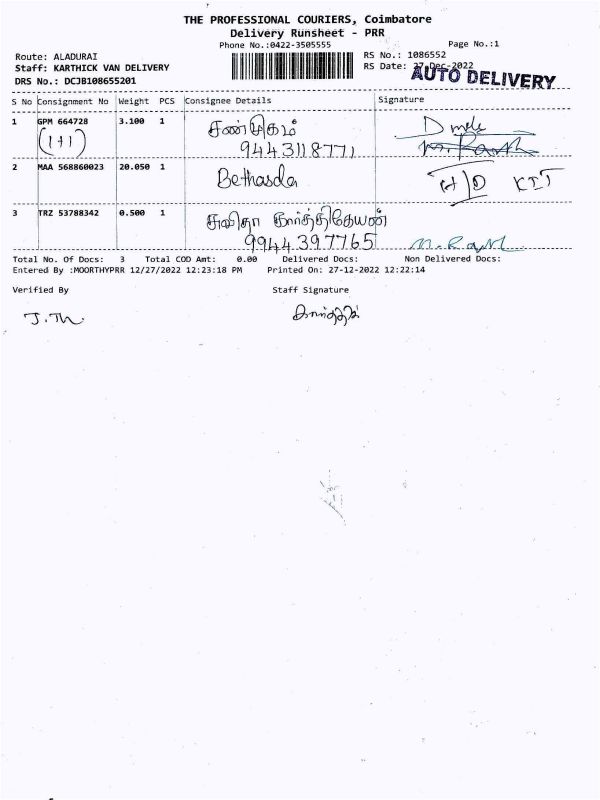 THE PROFESSIONAL COURIERS, Coimbatore
Delivery Runsheet - PRR
Phone No.:0422-3505555
Page No.:1
Route: ALADURAI
RS No.: 1086552
Staff: KARTHICK VAN DELIVERY
RS Date: 27-Dec-2022
DRS No.: DCJB108655201
AUTO DELIVERY
S No Consignment No Weight PCS Consignee Details Signature
1 GPM 664728 3.100 1 சண்முகம்
(1+1) 9443118771
2 MAA 568860023 20.050 1 Bethasda
3 TRZ 53788342 0.500 1 சுவிதா கார்த்திகேயன்
9944397765
Total No. Of Docs: 3 Total COD Amt: 0.00 Delivered Docs: Non Delivered Docs:
Entered By :MOORTHYPRR 12/27/2022 12:23:18 PM Printed On: 27-12-2022 12:22:14
Verified By Staff Signature